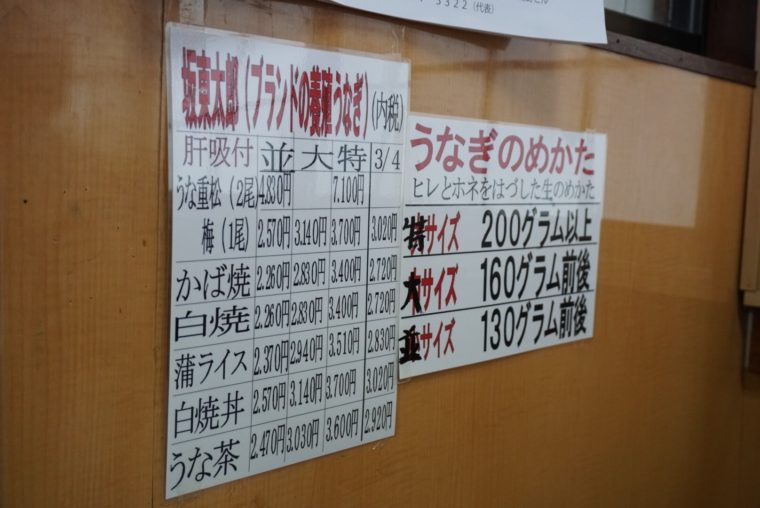 3322（代表）
坂東太郎（ブランドの養殖うなぎ）（内税）
肝吸付 並 大 特 3/4
うな重松（2尾） 4.830円 7.100円
梅（1尾） 2.570円 3.140円 3.700円 3.020円
かば焼 2.260円 2.830円 3.400円 2.720円
白焼 2.260円 2.830円 3.400円 2.720円
蒲ライス 2.370円 2.940円 3.510円 2.830円
白焼丼 2.570円 3.140円 3.700円 3.020円
うな茶 2.470円 3.030円 3.600円 2.920円
うなぎのめかた
ヒレとホネをはづした生のめかた
特サイズ 200グラム以上
大サイズ 160グラム前後
並サイズ 130グラム前後